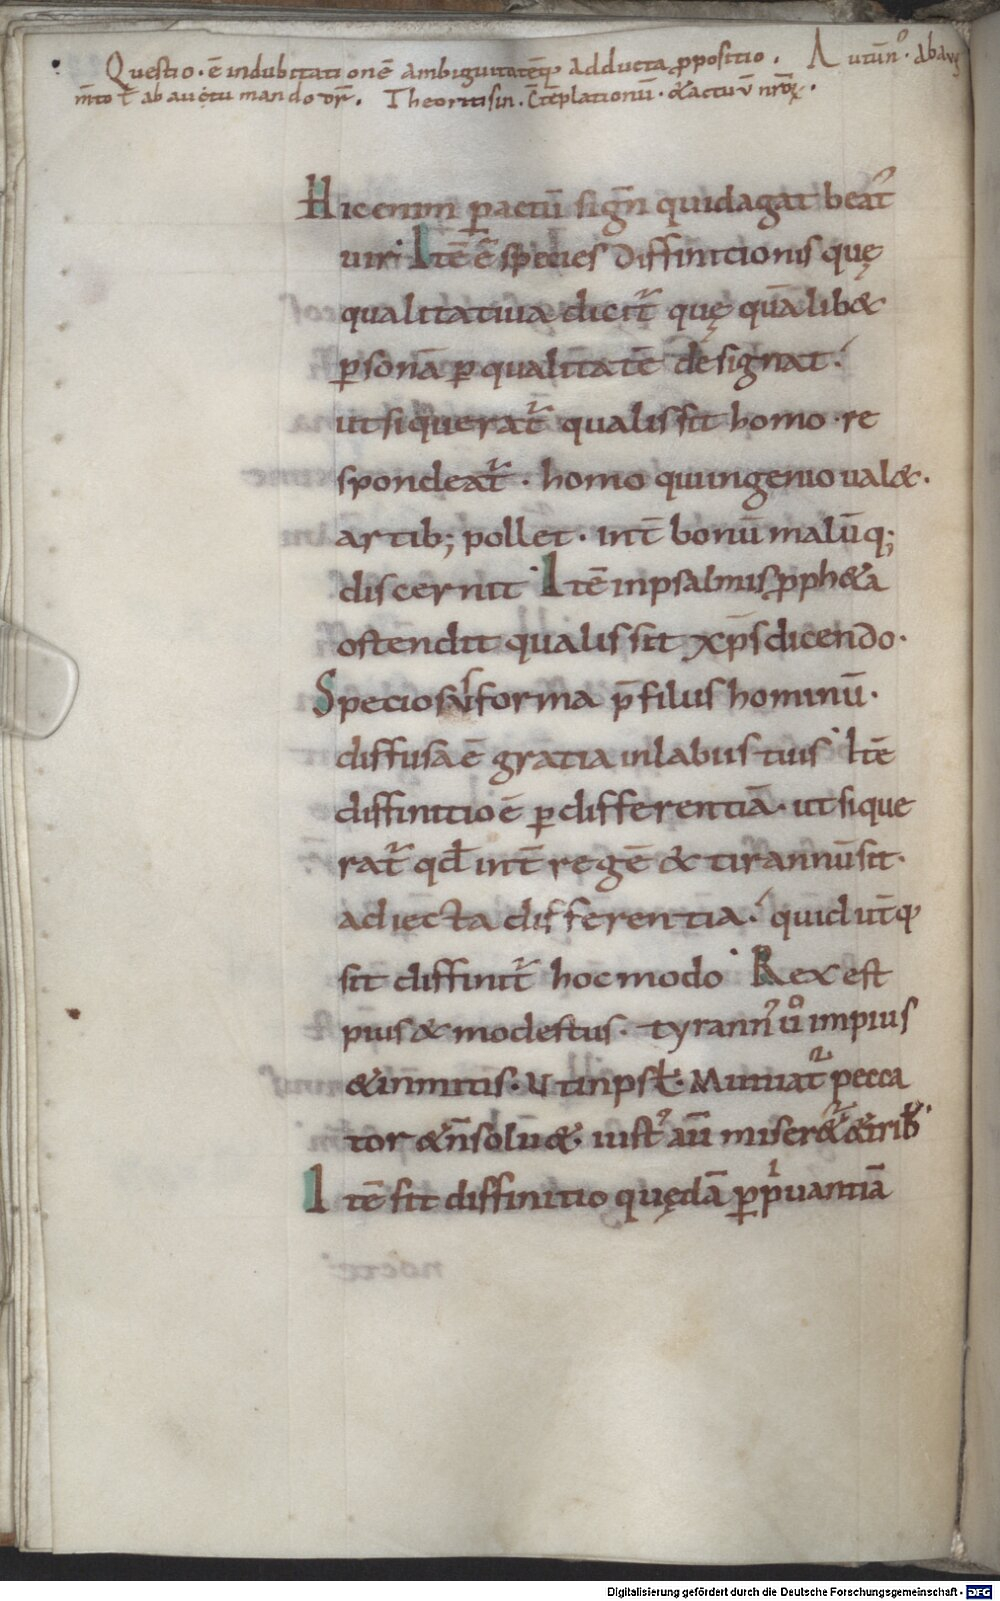 Questio · ē indubitationē ambiguitatēq; adducta ꝓpositio . Autūn᷒ · ab aug
m̄to ł ab auctu mando dr̄ . Theoritisin . Cōteplationū · & actuū nr̄oꝝ .
Hic enim ꝑ actū sign̄ quid agat beat᷒
uir· Itē ē species diffinitionis quę
qualitatiua dicit᷑ quę quālib&
ꝑsonā ꝑ qualitatē designat .
ut si querat᷑ qualis sit homo · re
spondeat᷑ . homo qui ingenio ual& .
artib; pollet . int̄ bonū malūq;
discernit · Itē in psalmis ꝓph&a
ostendit qualis sit xp̄s dicendo .
Speciosus forma p̄ filiis hominū .
diffusa ē gratia in labiis tuis · Itē
diffinitio ē ꝑ differentiā . ut si que
rat᷑ qđ int̄ regē & tirannū sit .
adiecta differentia . quid ut̄q;
sit diffinit᷑ hoc modo · Rex est
pius & modestus . tyrann᷒ ů impius
& inmitis . Ut in psł . Mutuat᷑ pecca
tor & n̄ solu& . iust᷒ aū miser&᷑ & trib᷒ .
Itē fit diffinitio quędā ꝑ pͥuantiā